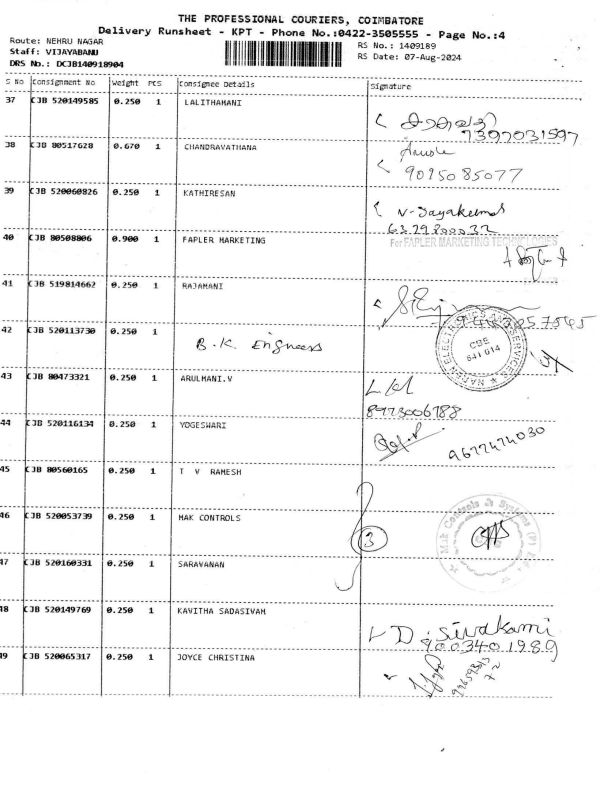 THE PROFESSIONAL COURIERS, COIMBATORE
Delivery Runsheet - KPT - Phone No.:0422-3505555 - Page No.:4
Route: NEHRU NAGAR
RS No.: 1409189
Staff: VIJAYABANU
RS Date: 07-Aug-2024
DRS No.: DCJB140918904
S No Consignment No Weight PCS Consignee Details Signature
37 CJB 520149585 0.250 1 LALITHAMANI
7397031597
38 CJB 80517628 0.670 1 CHANDRAVATHANA
9095085077
39 CJB 520060826 0.250 1 KATHIRESAN N-Jayakumar
40 CJB 80508806 0.900 1 FAPLER MARKETING For FAPLER MARKETING TECHNOLOGIES
41 CJB 519814662 0.250 1 RAJAMANI
42 CJB 520113730 0.250 1 B.K. Engineers
CBE 641 014
43 CJB 80473321 0.250 1 ARULMANI.V
8973006788
44 CJB 520116134 0.250 1 YOGESWARI 9677474030
45 CJB 80560165 0.250 1 T V RAMESH
46 CJB 520053739 0.250 1 MAK CONTROLS 3 Mak Controls & Systems (P)
47 CJB 520160331 0.250 1 SARAVANAN
48 CJB 520149769 0.250 1 KAVITHA SADASIVAM D. Sivakami
9003401989
49 CJB 520065317 0.250 1 JOYCE CHRISTINA